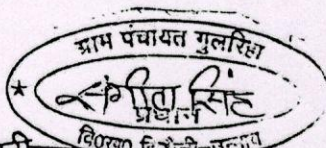 ग्राम पंचायत गुलरिहा
संगीता सिंह
प्रधान
वि०ख०